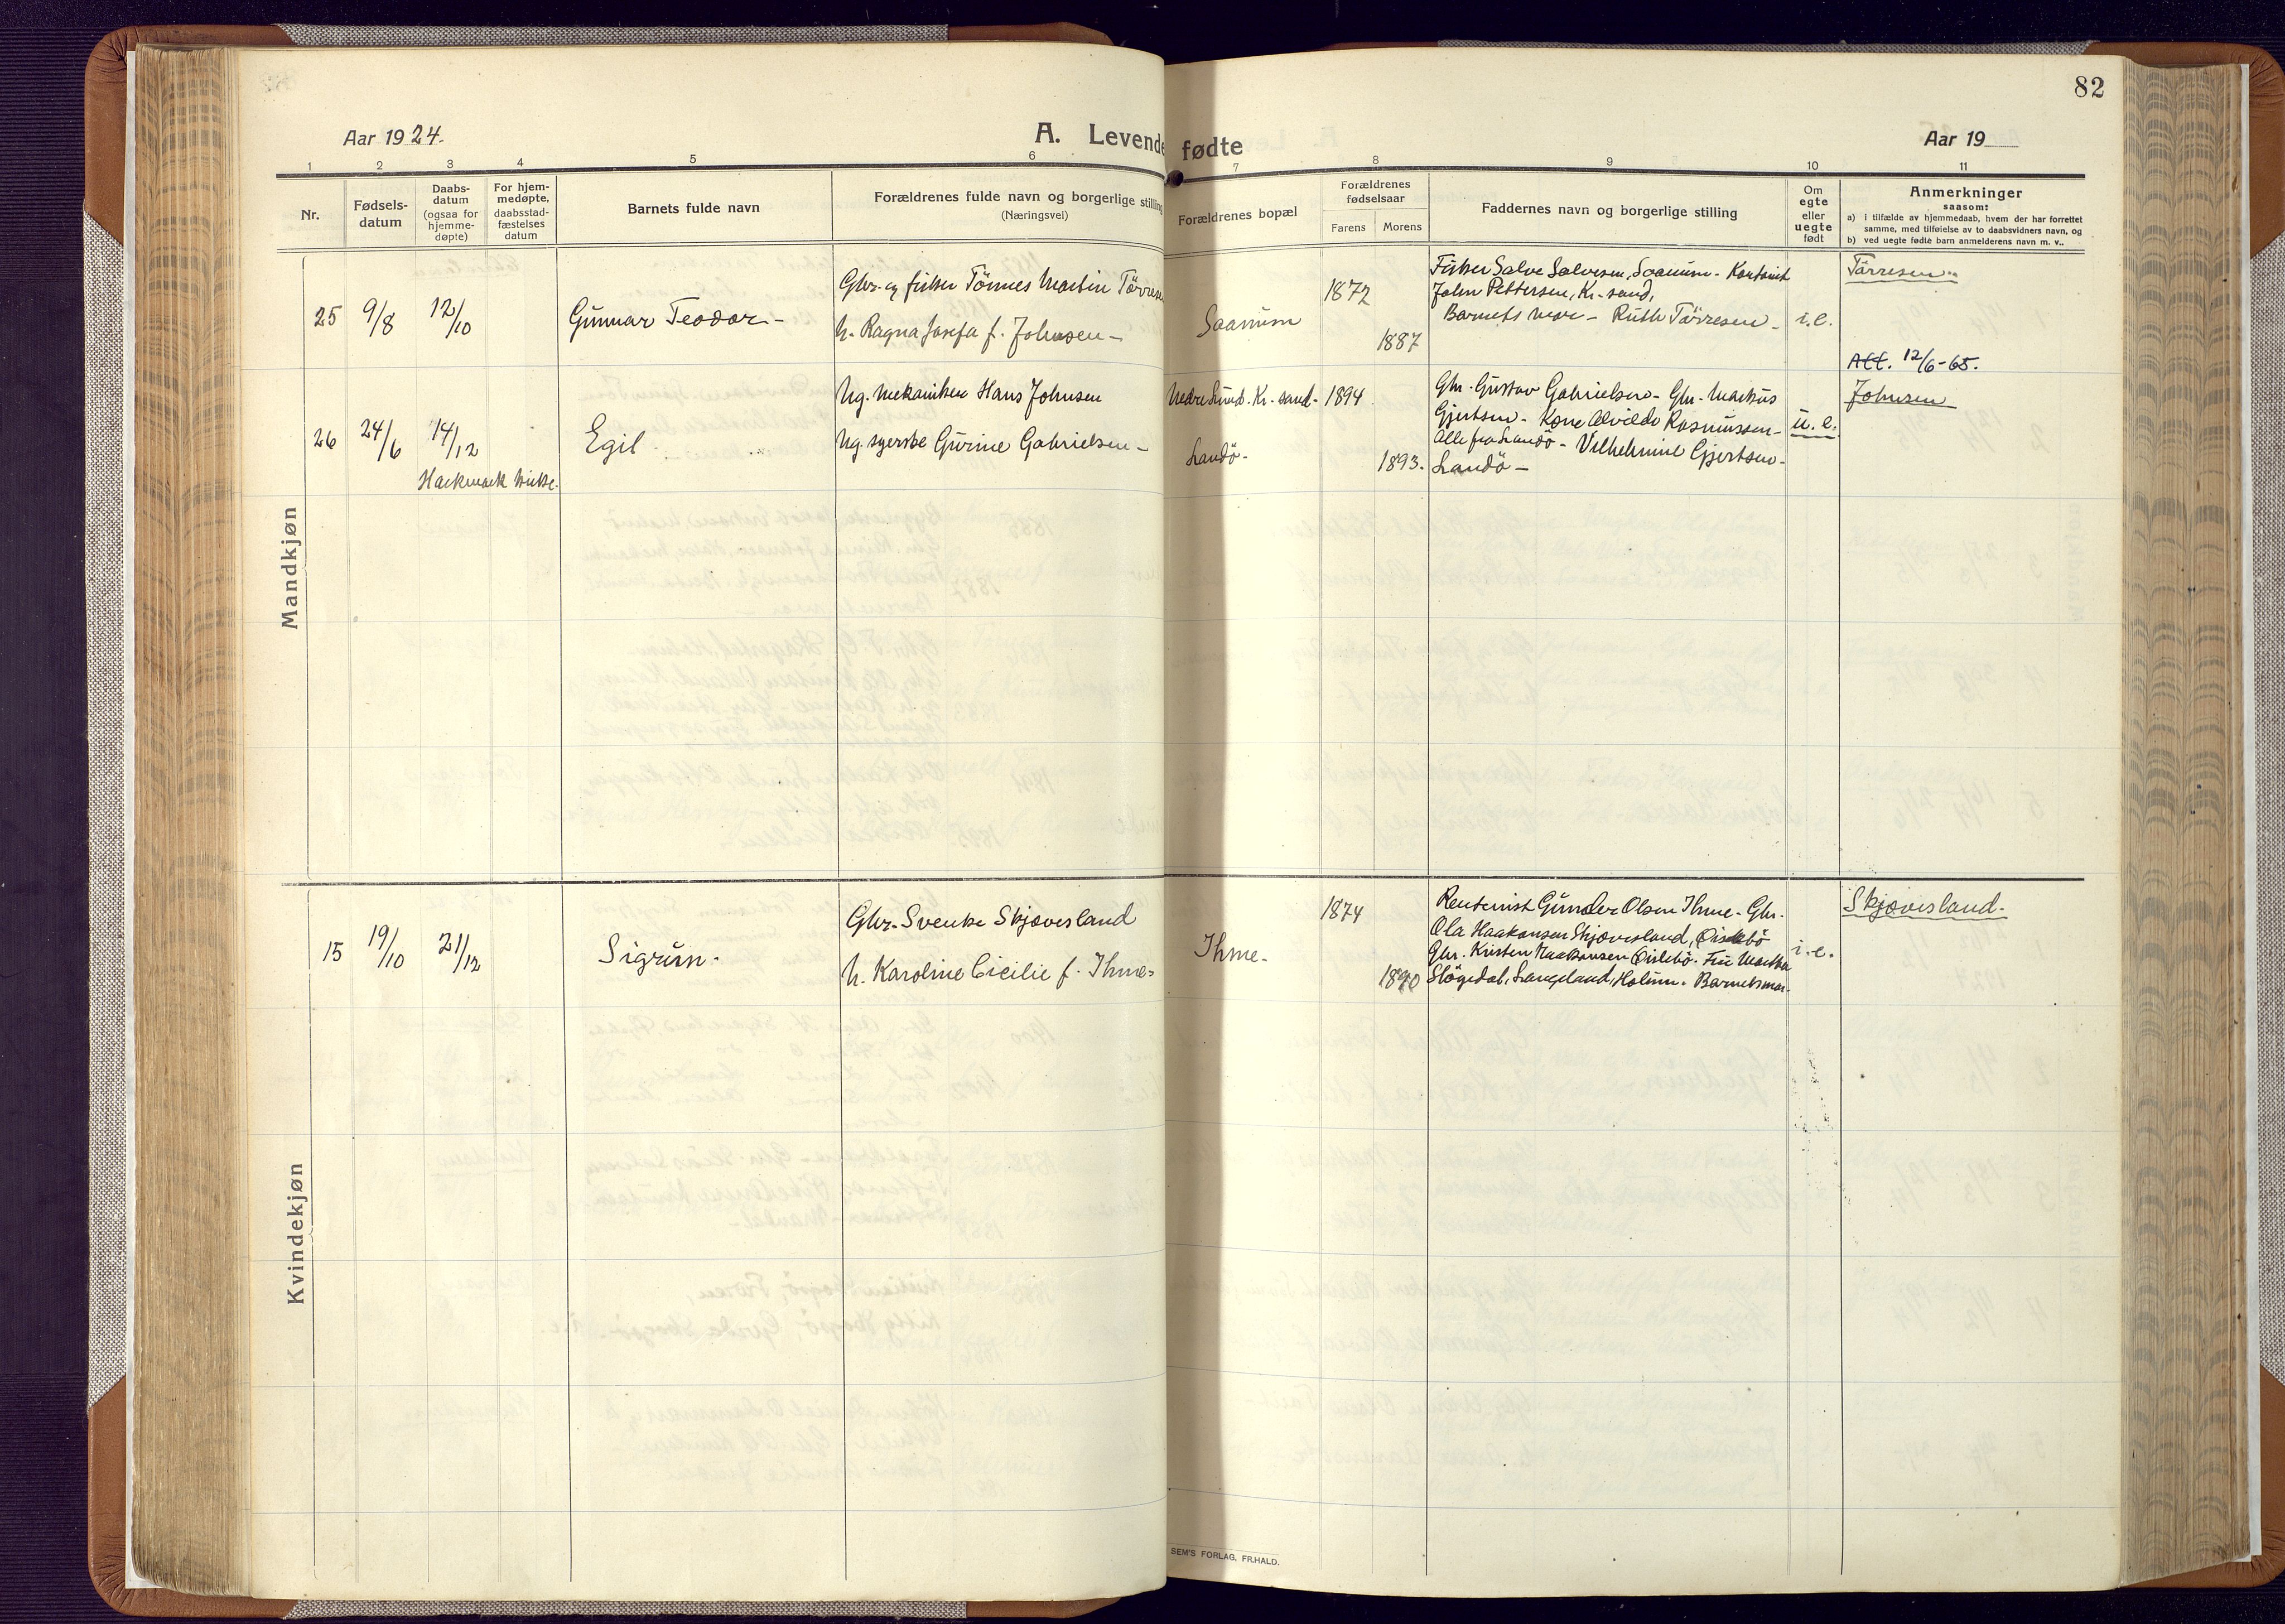 82
Aar 1924.
A. Levende fødte
Aar 19
1 2 3 4 5 6 7 8 9 10 11
Nr.
Fødsels-
datum
Daabs-
datum
(ogsaa for
hjemme-
døpte)
For hjem-
medøpte,
daabsstad-
fæstelses
datum
Barnets fulde navn
Forældrenes fulde navn og borgerlige stilling
(Næringsvei)
Forældrenes bopæl
Forældrenes
fødselsaar
Farens Morens
Faddernes navn og borgerlige stilling
Om
egte
eller
uegte
født
Anmerkninger
saasom:
a) i tilfælde av hjemmedaab, hvem der har forrettet
samme, med tilføielse av to daabsvidners navn, og
b) ved uegte fødte barn anmelderens navn m. v..
Mandkjøn
25 9/8 12/10 Gunnar Teodor -
Gbr. og fisker Tönnes Martin Törresen
h. Ragna Josefa f. Johnsen -
Saanum
1872
1887
Fisker Salve Salvesen, Saanum - Kontorist
John Pettersen, Kr. sand,
Barnets mor - Ruth Törresen -
i.e.
Törresen
Att. 12/6-65.
26 24/6 14/12 Egil
Hackmack kirke.
Ug. mekaniker Hans Johnsen
Ug. syerske Gurine Gabrielsen -
Nedre Lund. Kr. sand -
Landö -
1894
1893.
Gbr. Gustav Gabrielsen - Gbr. Markus
Gjertsen - Kone Alvilde Rasmussen -
Alle fra Landö - Vilhelmine Gjertsen -
Landö -
u. e.
Johnsen
Kvindekjøn
15 19/10 21/12 Sigrun.
Gbr. Svenke Skjævesland
h. Karoline Cicilie f. Ihme -
Ihme -
1874
1890
Rentenist Gunder Olsen Ihme - Gbr.
Ola Haakonsen Skjævesland, Öislebö
Gbr. Kristen Haakonsen Öislebö. Fru Martha
Slögedal, Langeland, Holum. Barnets mor.
i.e.
Skjævesland.
SEM'S FORLAG, FR.HALD.